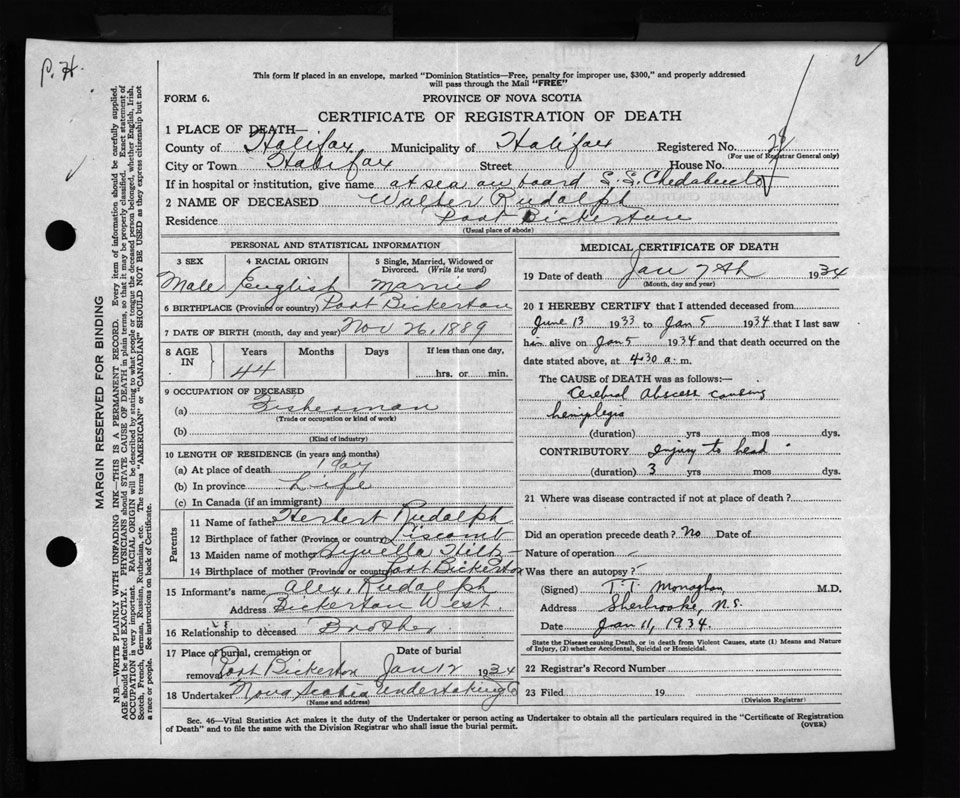 P. H.
This form if placed in an envelope, marked "Dominion Statistics—Free, penalty for improper use, $300," and properly addressed
will pass through the Mail "FREE"
FORM 6.
PROVINCE OF NOVA SCOTIA
CERTIFICATE OF REGISTRATION OF DEATH
1 PLACE OF DEATH—
County of Halifax Municipality of Halifax Registered No.
(For use of Registrar General only)
City or Town Halifax Street House No.
If in hospital or institution, give name at sea on board S.S. Chedabucto
2 NAME OF DECEASED Walter Rudolph
Residence Port Bickerton
(Usual place of abode)
PERSONAL AND STATISTICAL INFORMATION
3 SEX 4 RACIAL ORIGIN 5 Single, Married, Widowed or Divorced. (Write the word)
Male English Married
6 BIRTHPLACE (Province or country) Port Bickerton
7 DATE OF BIRTH (month, day and year) Nov 26, 1889
8 AGE IN Years Months Days If less than one day,
44 hrs. or min.
9 OCCUPATION OF DECEASED
(a) Fisherman
(Trade or occupation or kind of work)
(b)
(Kind of industry)
10 LENGTH OF RESIDENCE (in years and months)
(a) At place of death 1 day
(b) In province Life
(c) In Canada (if an immigrant)
Parents
11 Name of father Herbert Rudolph
12 Birthplace of father (Province or country) Liscomb
13 Maiden name of mother Hiltz
14 Birthplace of mother (Province or country) Port Bickerton
15 Informant's name Alex. Rudolph
Address Bickerton West.
16 Relationship to deceased Brother
17 Place of burial, cremation or removal Date of burial
Port Bickerton Jan 12 1934
18 Undertaker Nova Scotia Undertaking Co
(Name and address)
MEDICAL CERTIFICATE OF DEATH
19 Date of death Jan 7th 1934
(Month, day and year)
20 I HEREBY CERTIFY that I attended deceased from
June 13 1933 to Jan 5 1934 that I last saw
him alive on Jan 5 1934 and that death occurred on the
date stated above, at 4.30 a. m.
The CAUSE OF DEATH was as follows:—
Cerebral abscess causing
hemiplegia
(duration) yrs mos dys.
CONTRIBUTORY Injury to head
(duration) 3 yrs mos dys.
21 Where was disease contracted if not at place of death?
Did an operation precede death? No Date of
Nature of operation
Was there an autopsy?
(Signed) T. T. Monaghan, M.D.
Address Sherbrooke, N.S.
Date Jan 11, 1934.
State the Disease causing Death, or in death from Violent Causes, state (1) Means and Nature
of Injury, (2) whether Accidental, Suicidal or Homicidal.
22 Registrar's Record Number
23 Filed 19
(Division Registrar)
Sec. 46—Vital Statistics Act makes it the duty of the Undertaker or person acting as Undertaker to obtain all the particulars required in the "Certificate of Registration
of Death" and to file the same with the Division Registrar who shall issue the burial permit.
(OVER)
MARGIN RESERVED FOR BINDING
N.B.—WRITE PLAINLY WITH UNFADING INK—THIS IS A PERMANENT RECORD. Every item of information should be carefully supplied.
AGE should be stated EXACTLY. PHYSICIANS should STATE CAUSE OF DEATH in plain terms, so that it may be properly classified. Exact statement of
OCCUPATION is very important. RACIAL ORIGIN will be described by stating to what people or tongue the deceased person belonged, whether English, Irish,
Scotch, French, German, Russian, Ruthenian, etc. The terms "AMERICAN" or "CANADIAN" SHOULD NOT BE USED as they express citizenship but not
a race or people. See instructions on back of Certificate.